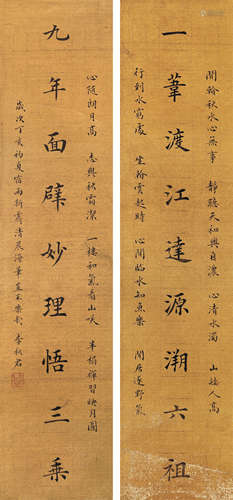 一葦渡江達源溯六祖
閒於秋水心無事 靜聽天和興自濃 心清水濁 山矮人高
行到水窮處 坐看雲起時 心閒臨水知魚樂 閒居遂野
九年面壁妙理悟三乘
心隨朗月高 志與秋霜潔 一樓和氣看山笑 半榻禪習映月圓
歲次丁亥初夏 雨新霽清晨海 李秋君